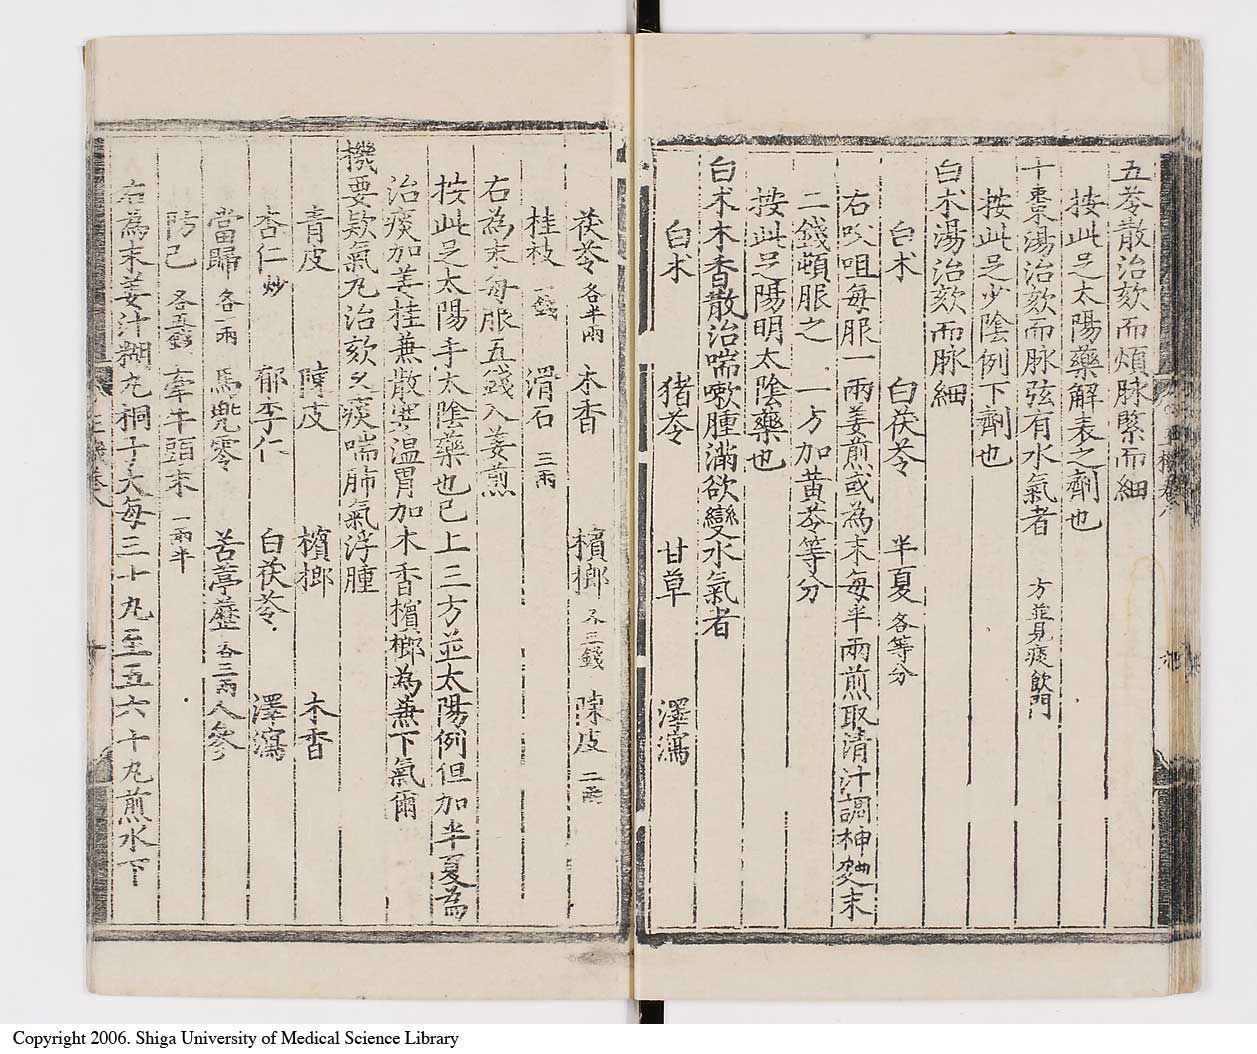 五苓散治欬而煩脉緊而細
按此足太陽藥解表之劑也
十棗湯治欬而脉弦有水氣者 方並見痰飲門
按此足少陰例下劑也
白术湯治欬而脉細
白术 白茯苓 半夏各等分
右㕮咀每服一兩姜煎或為末每半兩煎取清汁調神麯末
二錢頓服之 一方加黃芩等分
按此足陽明太陰藥也
白术木香散治喘嗽腫滿欲變水氣者
白术 猪苓 甘草 澤瀉
茯苓各半兩 木香 檳榔各三錢 陳皮二兩
桂枝二錢 滑石三兩
右為末每服五錢入姜煎
按此足太陽手太陰藥也已上三方並太陽例但加半夏為
治痰加姜桂兼散寒温胃加木香檳榔為兼下氣爾
機要欬氣丸治欬久痰喘肺氣浮腫
青皮 陳皮 檳榔 木香
杏仁炒 郁李仁 白茯苓 澤瀉
當歸各一兩 馬兜零 苦葶藶各三兩 人參
防己各五錢 牽牛頭末一兩半
右為末姜汁糊丸桐子大每三十丸至五六十丸煎水下
Copyright 2006. Shiga University of Medical Science Library